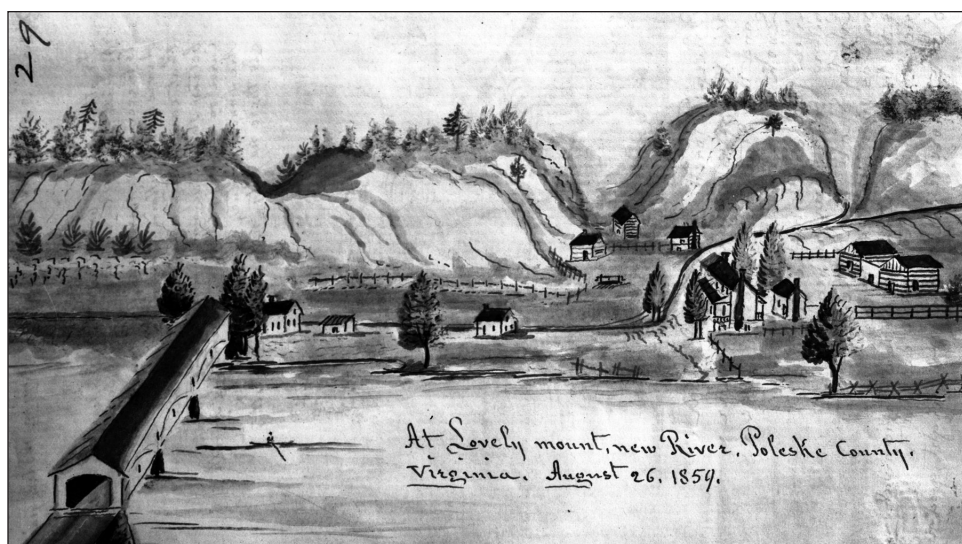 29
At Lovely mount, new River, Poleske County.
Virginia. August 26, 1859.